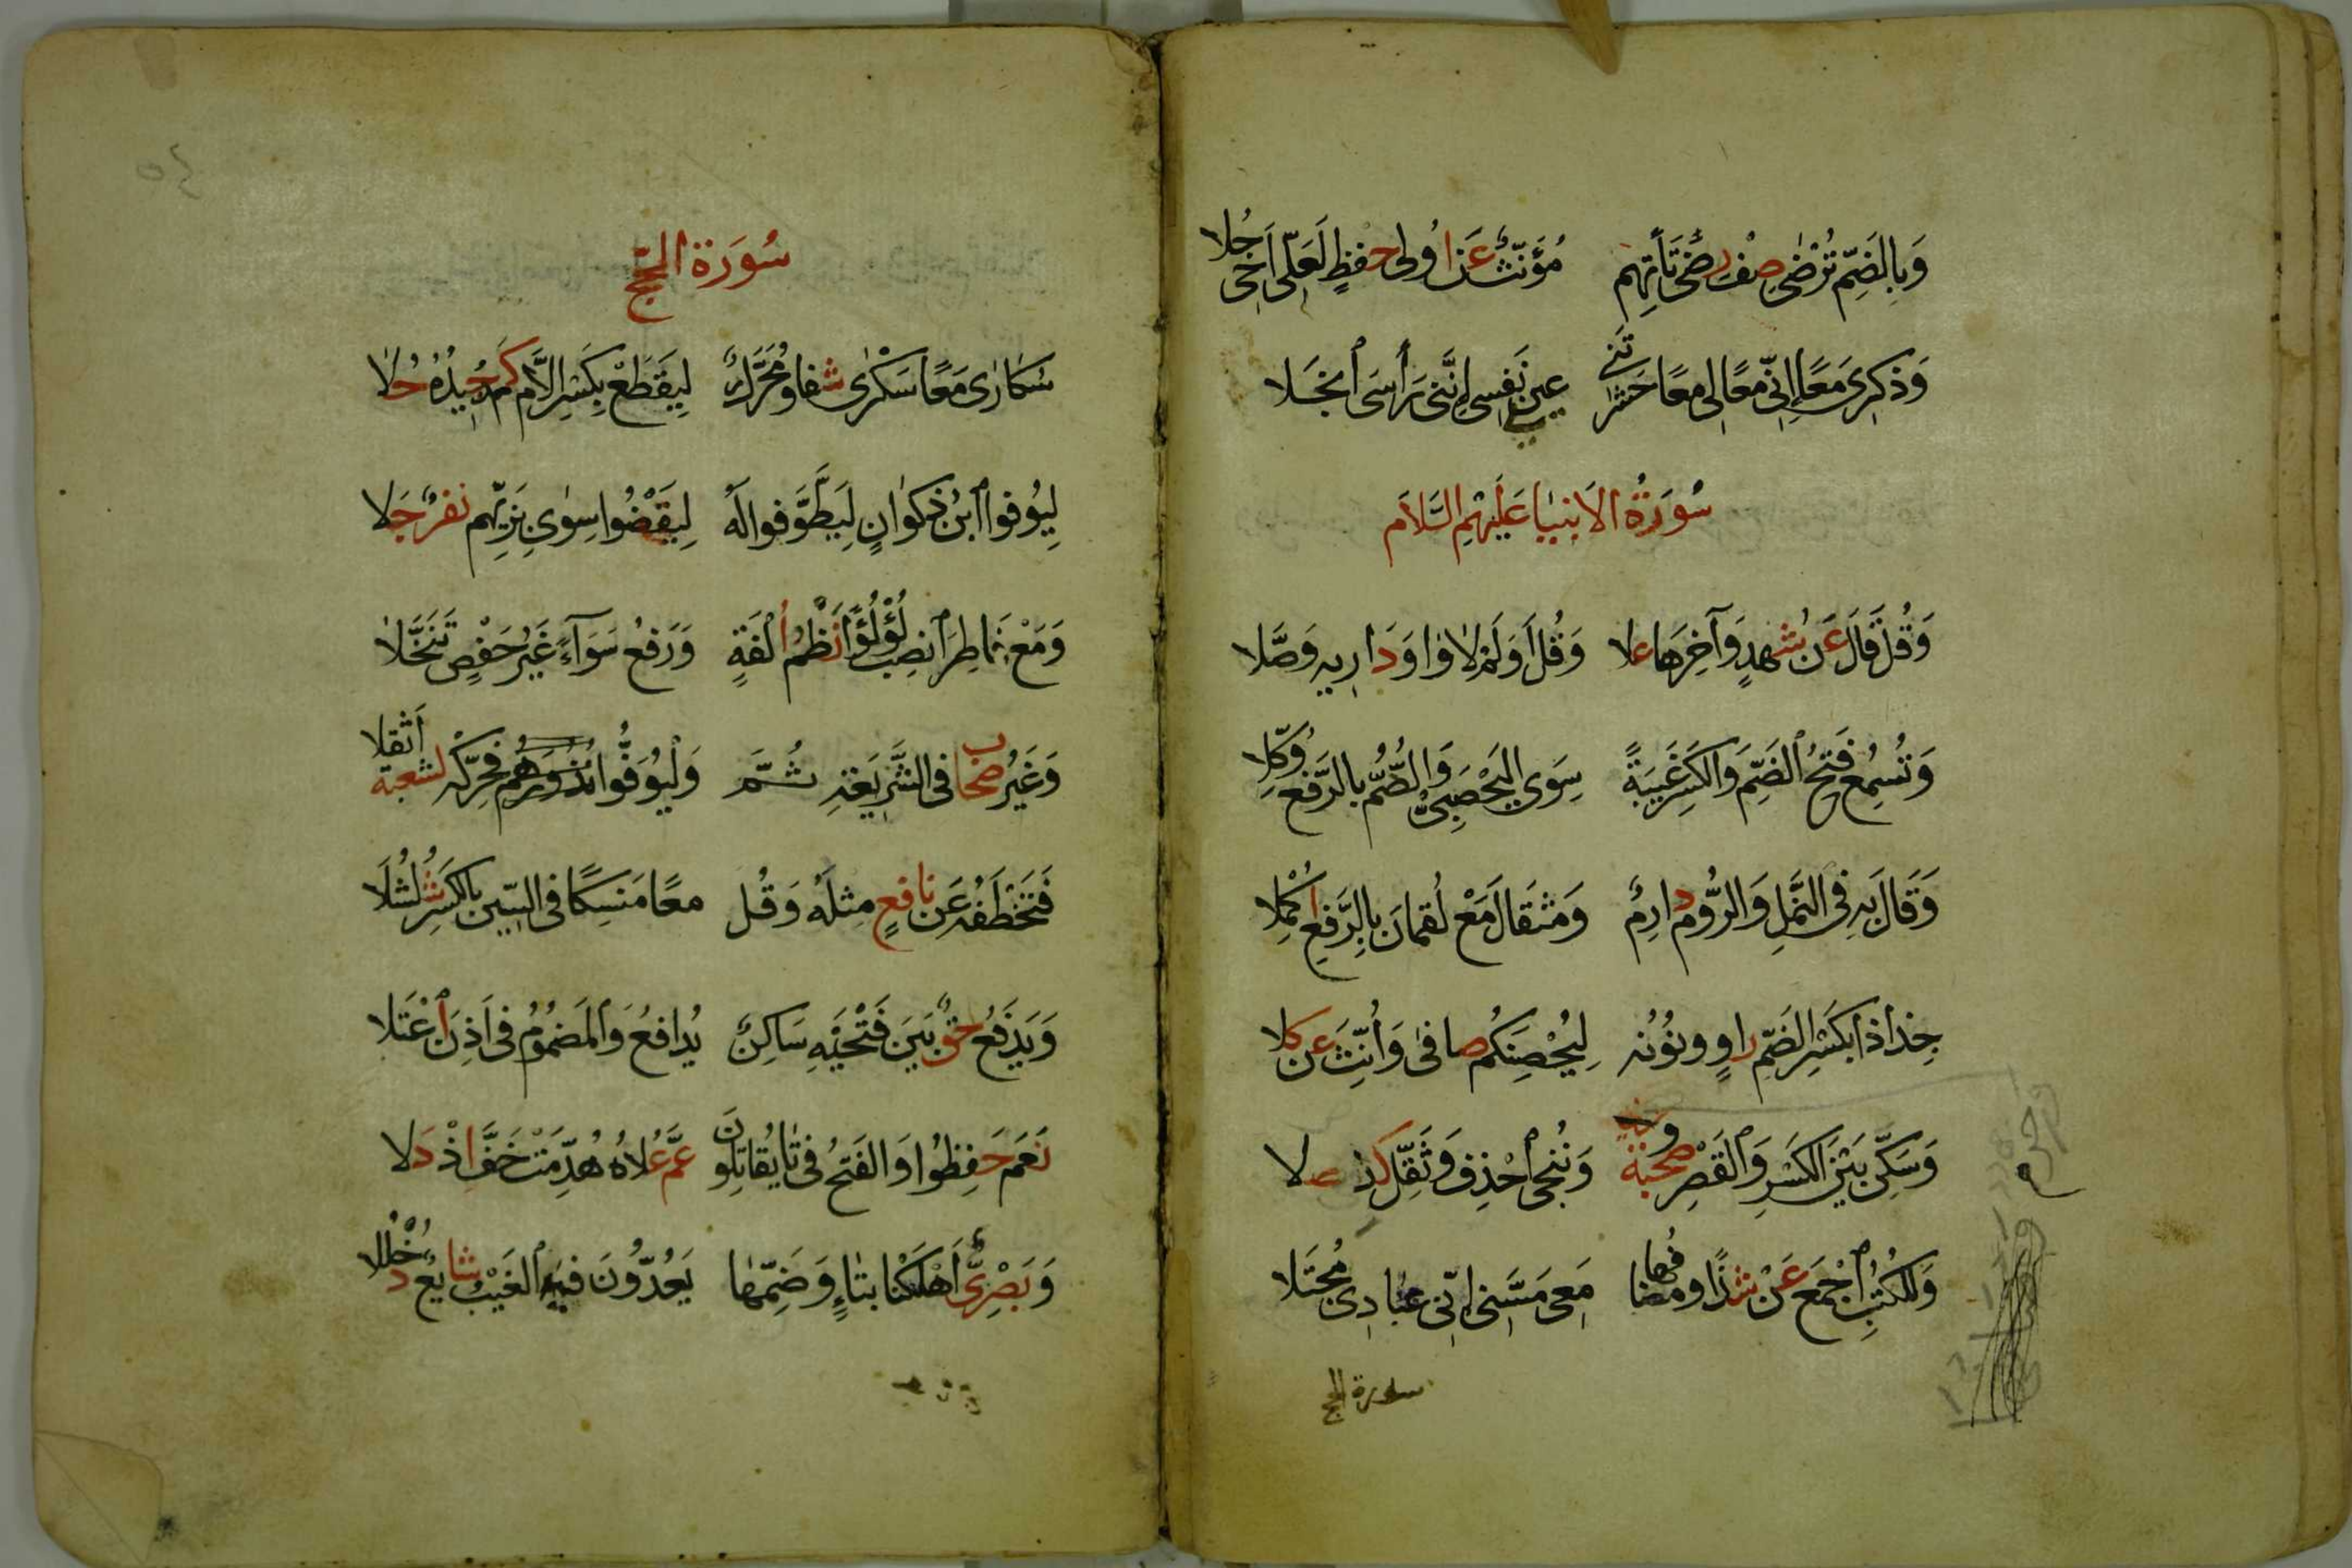 وَبِالضَّمِّ تُرْضٰى صِفْ رِضًى تَأْتِهِم مُؤَنَّثٌ عَنْ اُولِى حِفْظٍ لَعَلِّى اَخِى حُلَا
وَذِكْرِى مَعًا اِنِّى مَعًا لِى مَعًا حَشَرْتَنِى عَيْنِ نَفْسِى اِنَّنِى رَأْسِىَ ٱنْجَلَا
سُورَةُ الاَنبيَا عَلَيْهِم السَّلَام
وَقُلْ قَالَ عَنْ شُهْدٍ وَآخِرُهَا عَلَا وَقُلْ اَوَلَمْ لَا وَاوَ دَارِيهِ وَصَّلَا
وَتُسْمِعُ فَتْحُ ٱلضَّمِّ وَالْكَسْرِ غَيْبَةً سِوَى اليَحْصَبِىْ وَالصُّمُّ بِالرَّفْعِ وُكِّلَا
وَقَالَ بِهِ فِى النَّمْلِ وَالرُّومِ دَارِمٌ وَمِثْقَالَ مَعْ لُقْمَانَ بِالرَّفْعِ اُكْمِلَا
جُذَاذًا بِكَسْرِ الضَّمِّ رَاوٍ وَنُونُهُ لِيُحْصِنَكُمْ صَافٰى وَاُنِّثَ عَنْ كِلَا
وَسَكَّنَ بَيْنَ الْكَسْرِ وَٱلْقَصْرِ صُحْبَةٌ وَنُنْجِى ٱحْذِفْ وَثَقِّلْ كَذِى صِلَا
وَلِلْكُتُبِ ٱجْمَعْ عَنْ شَذًا وَمُضَافُهَا مَعِى مَسَّنِى اِنِّى عِبَادِىَ مُجْتَلَا
سورة الحج
٥٤
سُورَة الحَجّ
سُكَارٰى مَعًا سَكْرٰى شَفَا وَمُحَرَّكٌ لِيَقْطَعْ بِكَسْرِ اللَّامِ كَمْ جِيدُهُ حَلَا
لِيُوفُوا ٱبْنُ ذَكْوَانٍ لِيَطَّوَّفُوا لَهُ لِيَقْضُوا سِوٰى بَزِّيِّهِم نَفَرٌ جَلَا
وَمَعْ فَاطِرَ ٱنْصِبْ لُؤْلُؤًا نَظْمُ اُلْفَةٍ وَرَفْعُ سَوَآءً غَيْرُ حَفْصٍ تَنَخَّلَا
وَغَيْرُ صِحَابٍ فِى الشَّرِيعَةِ ثُمَّ وَلْيُوَفُّوا نُذُورَهُم فَحَرِّكْهُ لشعبة اَثْقَلَا
فَتَخْطَفُهُ عَنْ نَافِعٍ مِثْلُهُ وَقُل مَعًا مَنْسِكًا فِى السِّينِ بِالْكَسْرِ شُلْشُلَا
وَيَدْفَعُ حَقٌّ بَيْنَ فَتْحَيْهِ سَاكِنٌ يُدَافِعُ وَالمَضْمُومُ فِى اَذِنَ ٱعْتَلَا
نَعَمْ حَفِظُوا وَالفَتْحُ فِى تَا يُقَاتِلُونَ عَمَّ عُلَاهُ هُدِّمَتْ خَفَّ اِذْ دَلَا
وَبَصْرِىٌّ اَهْلَكْنَا بِتَاءٍ وَضَمِّهَا يَعُدُّونَ فِيهِ ٱلغَيْبُ شَايَعَ دُخْلُلَا